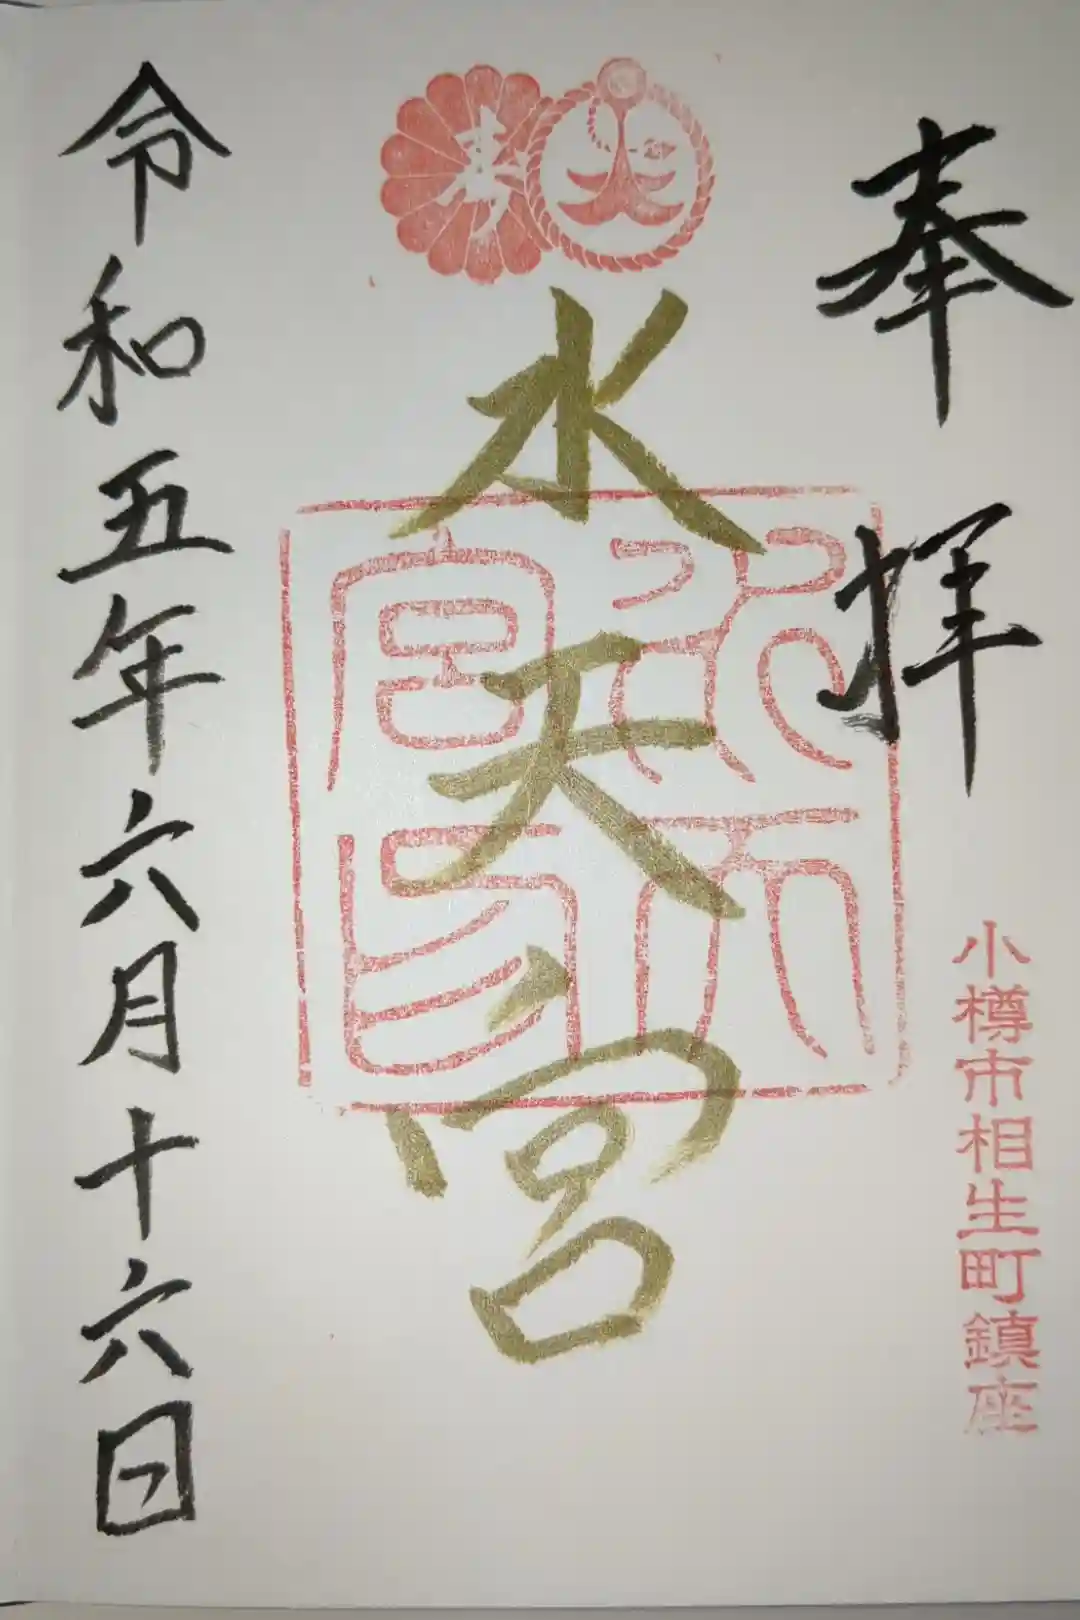 奉拝
小樽市相生町鎮座
水天宮
水天宮印
令和五年六月十六日